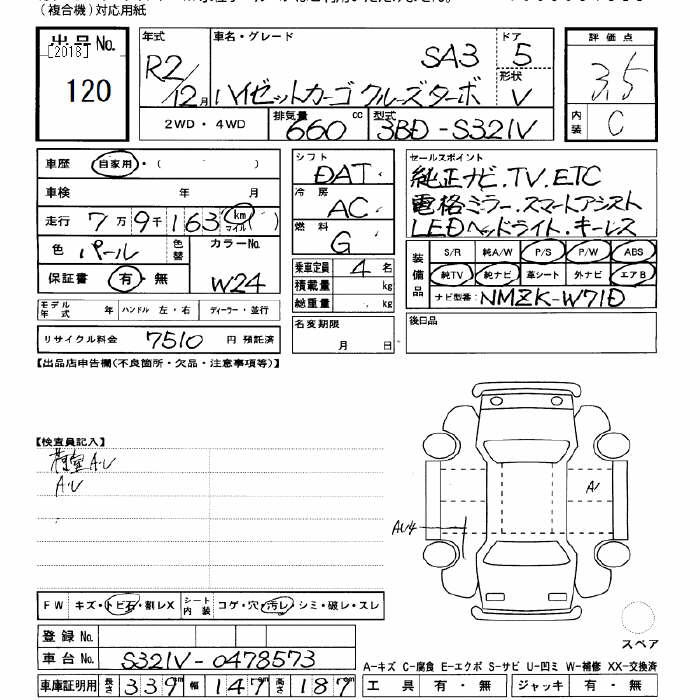 (複合機)対応用紙
出品No.
[2013]
120
年式 車名・グレード ドア 評価点
R2/12月 SA3 5 3.5
ハイゼットカーゴ クルーズターボ 形状 V
2WD・4WD 排気量 660 cc 型式 3BD-S321V 内装 C
車歴 自家用・( )
車検 年 月
走行 7万9千163 km マイル( )
色 パール 色替 カラーNo. W24
保証書 有・無
モデル年式 年 ハンドル 左・右 ディーラー・並行
リサイクル料金 7510 円 預託済
シフト DAT
冷房 AC
燃料 G
乗車定員 4 名
積載量 kg
総重量 kg
名変期限 月 日
セールスポイント
純正ナビ.TV.ETC
電格ミラー.スマートアシスト
LEDヘッドライト.キーレス
装備品 S/R 純A/W P/S P/W ABS
純TV 純ナビ 革シート 外ナビ エアB
ナビ型番: NMZK-W71D
後日品
【出品店申告欄(不良箇所・欠品・注意事項等)】
【検査員記入】
荷室A.U
A.U
A1
AU4
FW キズ・トビ石・割レX シート内装 コゲ・穴・汚レ・シミ・破レ・スレ
登録No.
車台No. S321V-0478573
車庫証明用 長さ 339cm 幅 147cm 高さ 187cm
スペア
A-キズ C-腐食 E-エクボ S-サビ U-凹ミ W-補修 XX-交換済
工具 有・無 ジャッキ 有・無